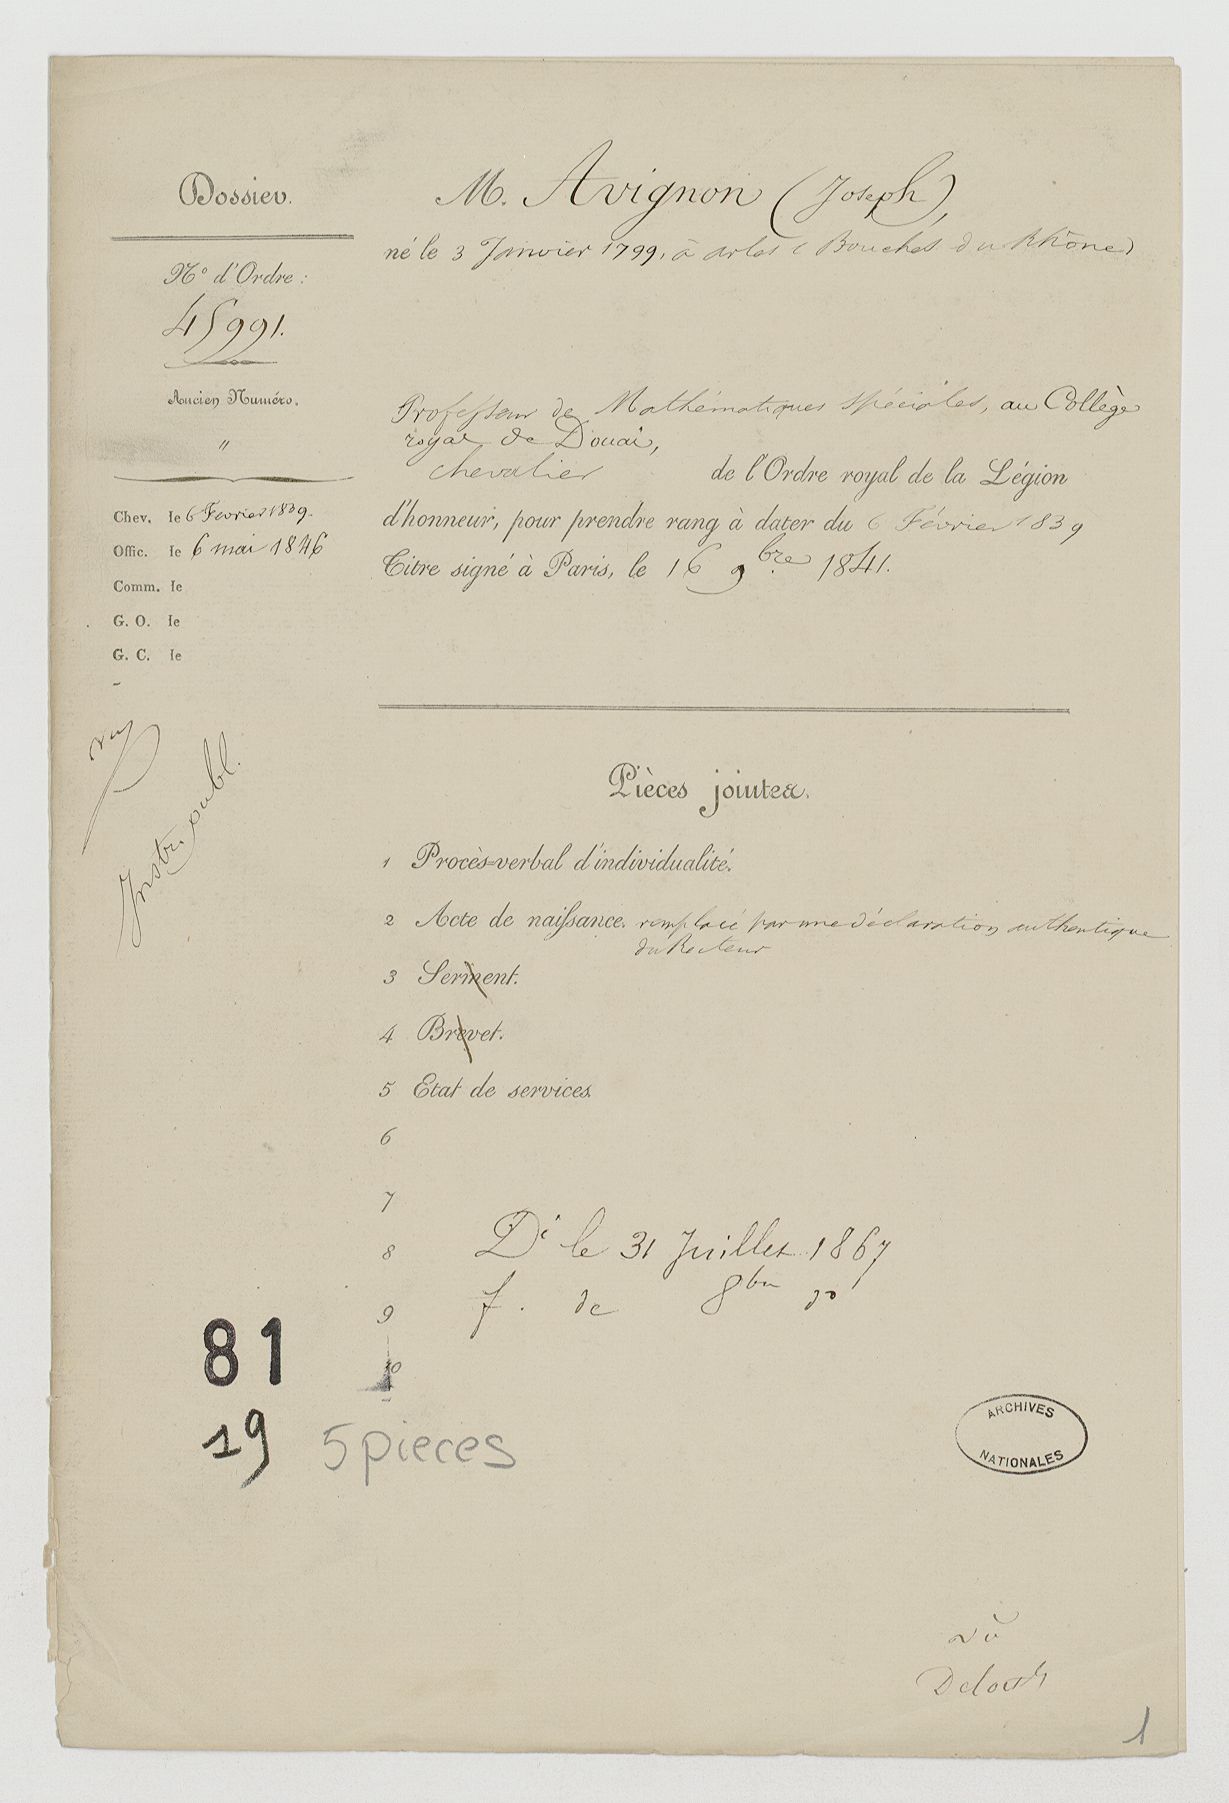 Dossier.
N° d'Ordre :
45991.
Ancien Numéro.
"
Chev. le 6 Février 1839.
Offic. le 6 mai 1846
Comm. le
G. O. le
G. C. le
vu
Instr. publ.
M. Avignon (Joseph),
né le 3 Janvier 1799, à arles (Bouches du Rhône)
Professeur de Mathématiques spéciales, au Collège
royal de Douai,
chevalier de l'Ordre royal de la Légion
d'honneur, pour prendre rang à dater du 6 Février 1839
Titre signé à Paris, le 16 9bre 1841.
Pièces jointes.
1 Procès-verbal d'individualité.
2 Acte de naissance. remplacé par une déclaration authentique
du Recteur
3 Serment.
4 Brevet.
5 Etat de services.
6
7
8 Dé le 31 Juillet 1867
9 f. de 8bre do
10
81
19 5 pieces
ARCHIVES
NATIONALES
vu
1